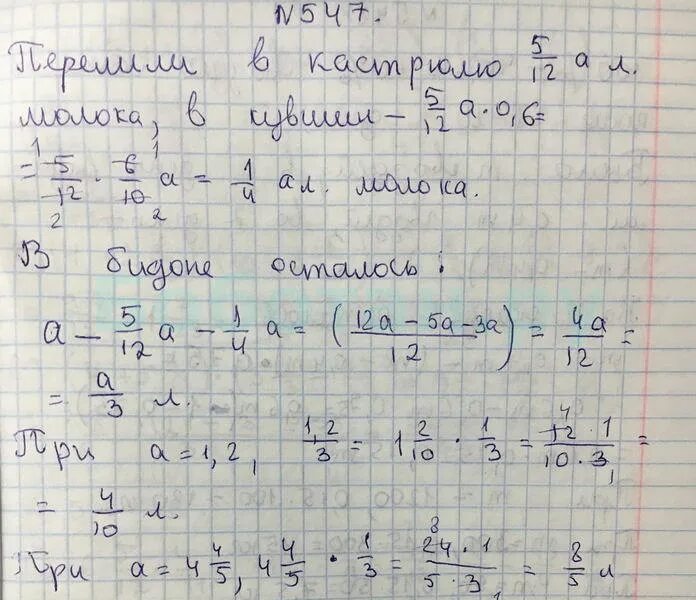 №547.
Перелили в кастрюлю 5/12 а л.
молока, в кувшин – 5/12 а · 0,6 =
= 5/12 · 6/10 а = 1/4 а л. молока.
В бидоне осталось:
а – 5/12 а – 1/4 а = (12а – 5а – 3а / 12) = 4а/12 =
= а/3 л.
При а = 1,2, 1,2/3 = 1 2/10 · 1/3 = 12 · 1 / 10 · 3 =
= 4/10 л.
При а = 4 4/5, 4 4/5 · 1/3 = 24 · 1 / 5 · 3 = 8/5 л